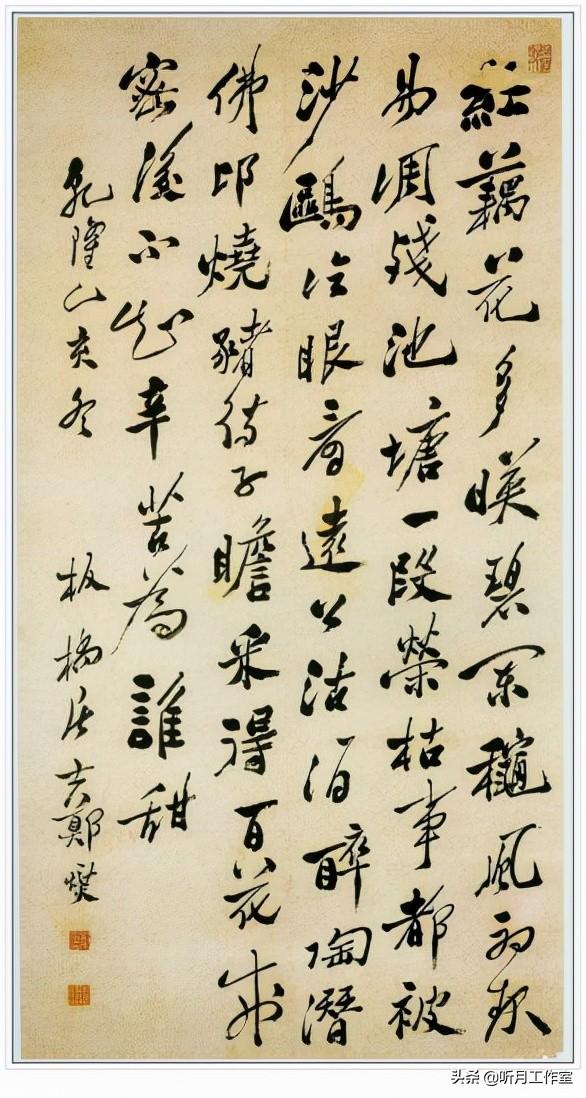 紅藕花多暎碧闌龝風初起
易凋殘池塘一段榮枯事都被
沙鷗冷眼看遠公沽酒醉陶潛
佛印燒豬待子瞻采得百花成
蜜後不知辛苦為誰甜
乾隆乙亥冬
板橋居士鄭燮
头条 @听月工作室